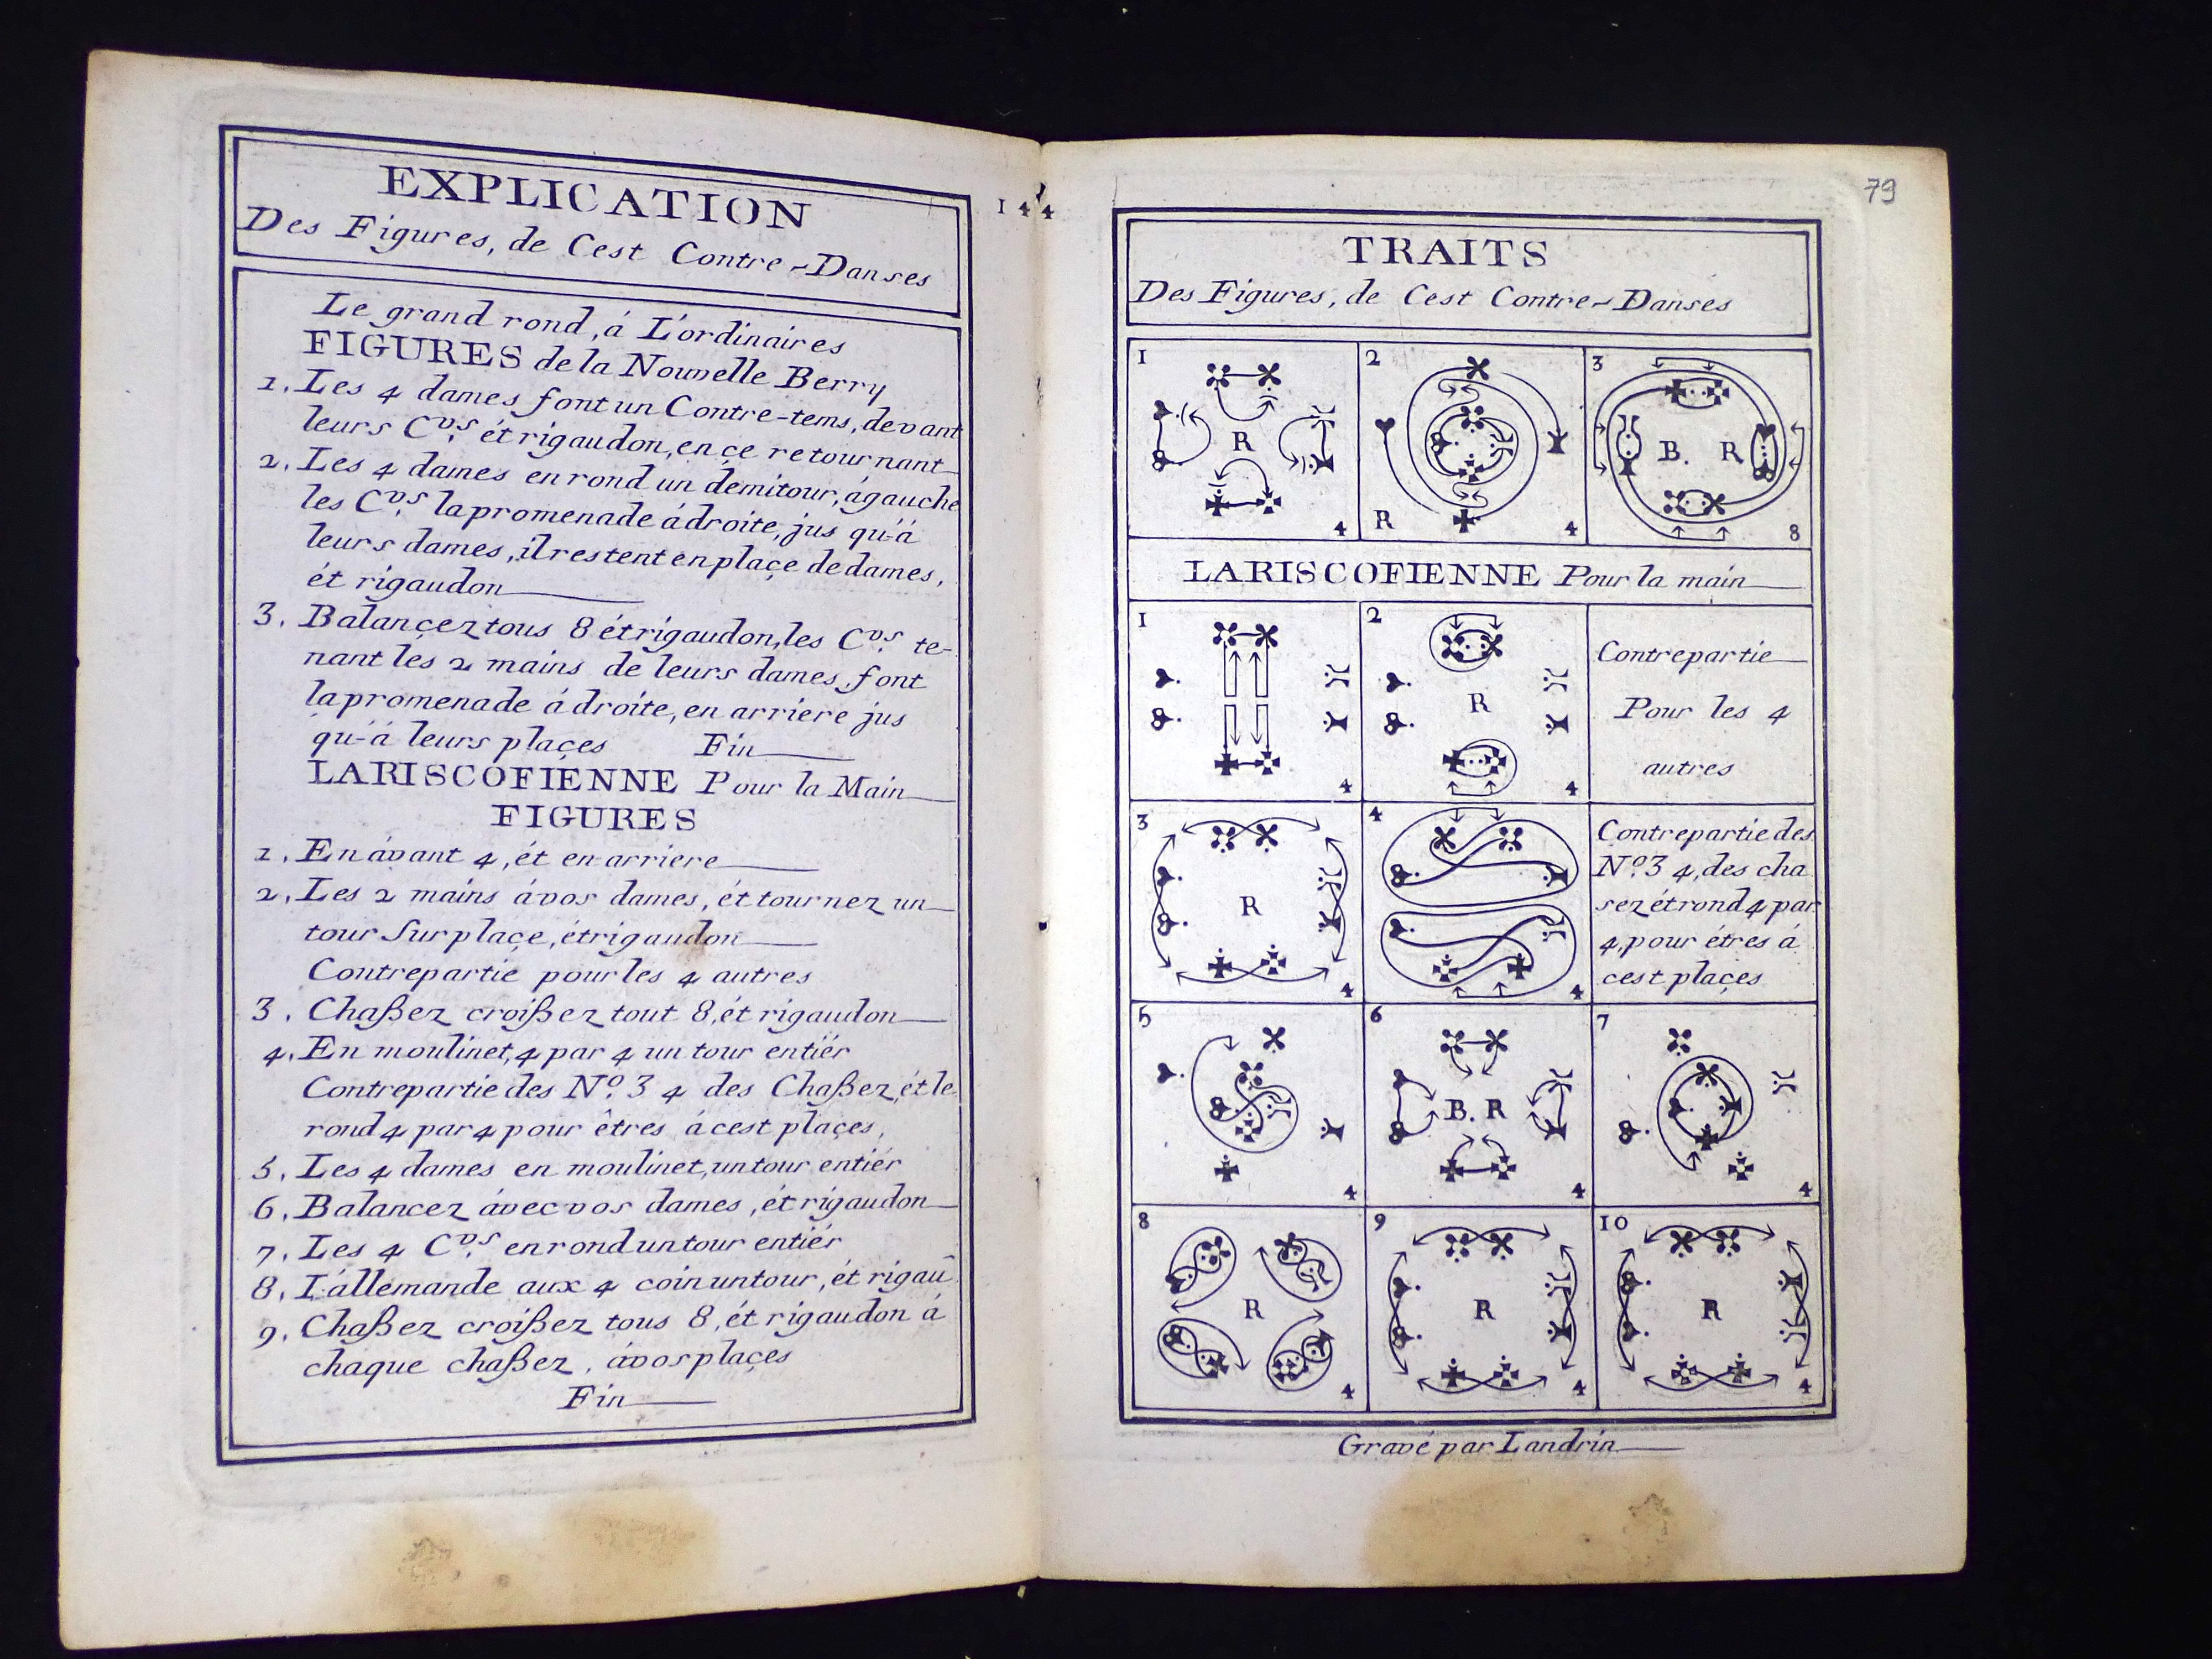 EXPLICATION
Des Figures, de Cest Contre-Danses
Le grand rond, á L'ordinaires
FIGURES de la Nouvelle Berry
1. Les 4 dames font un Contre-tems, devant
leurs Cvs. ét rigaudon, en çe retournant
2. Les 4 dames en rond un demitour, ágauche
les Cvs. la promenade á droite, jus qu'-á
leurs dames, il restent en plaçe de dames,
ét rigaudon
3. Balançez tous 8 ét rigaudon, les Cvs. te-
nant les 2 mains de leurs dames, font
la promenade á droite, en arriere jus
qu'-á leurs plaçes Fin
LARISCOFIENNE Pour la Main
FIGURES
1. En ávant 4, ét en arriere
2. Les 2 mains ávos dames, ét tournez un
tour Sur plaçe, ét rigaudon
Contrepartie pour les 4 autres
3. Chaßez croißez tout 8, ét rigaudon
4. En moulinet, 4 par 4 un tour entiér
Contrepartie des No. 3 4 des Chaßez, ét le
rond 4 par 4 pour êtres á cest plaçes,
5. Les 4 dames en moulinet, un tour entiér
6. Balancez ávec vos dames, ét rigaudon
7. Les 4 Cvs. en rond un tour entiér
8. L'allemande aux 4 coin un tour, ét rigau
9. Chaßez croißez tous 8, ét rigaudon á
chaque chaßez, ávos plaçes
Fin
144
79
TRAITS
Des Figures, de Cest Contre-Danses
1 2 3
R B. R
R
4 4 8
LARISCOFIENNE Pour la main
1 2
R
4 4
Contrepartie
Pour les 4
autres
3 4
R
4 4
Contrepartie des
No. 3 4, des cha
sez ét rond 4 par
4, pour étres á
cest plaçes
5 6 7
B. R
4 4 4
8 9 10
R R R
4 4 4
Gravé par Landrin